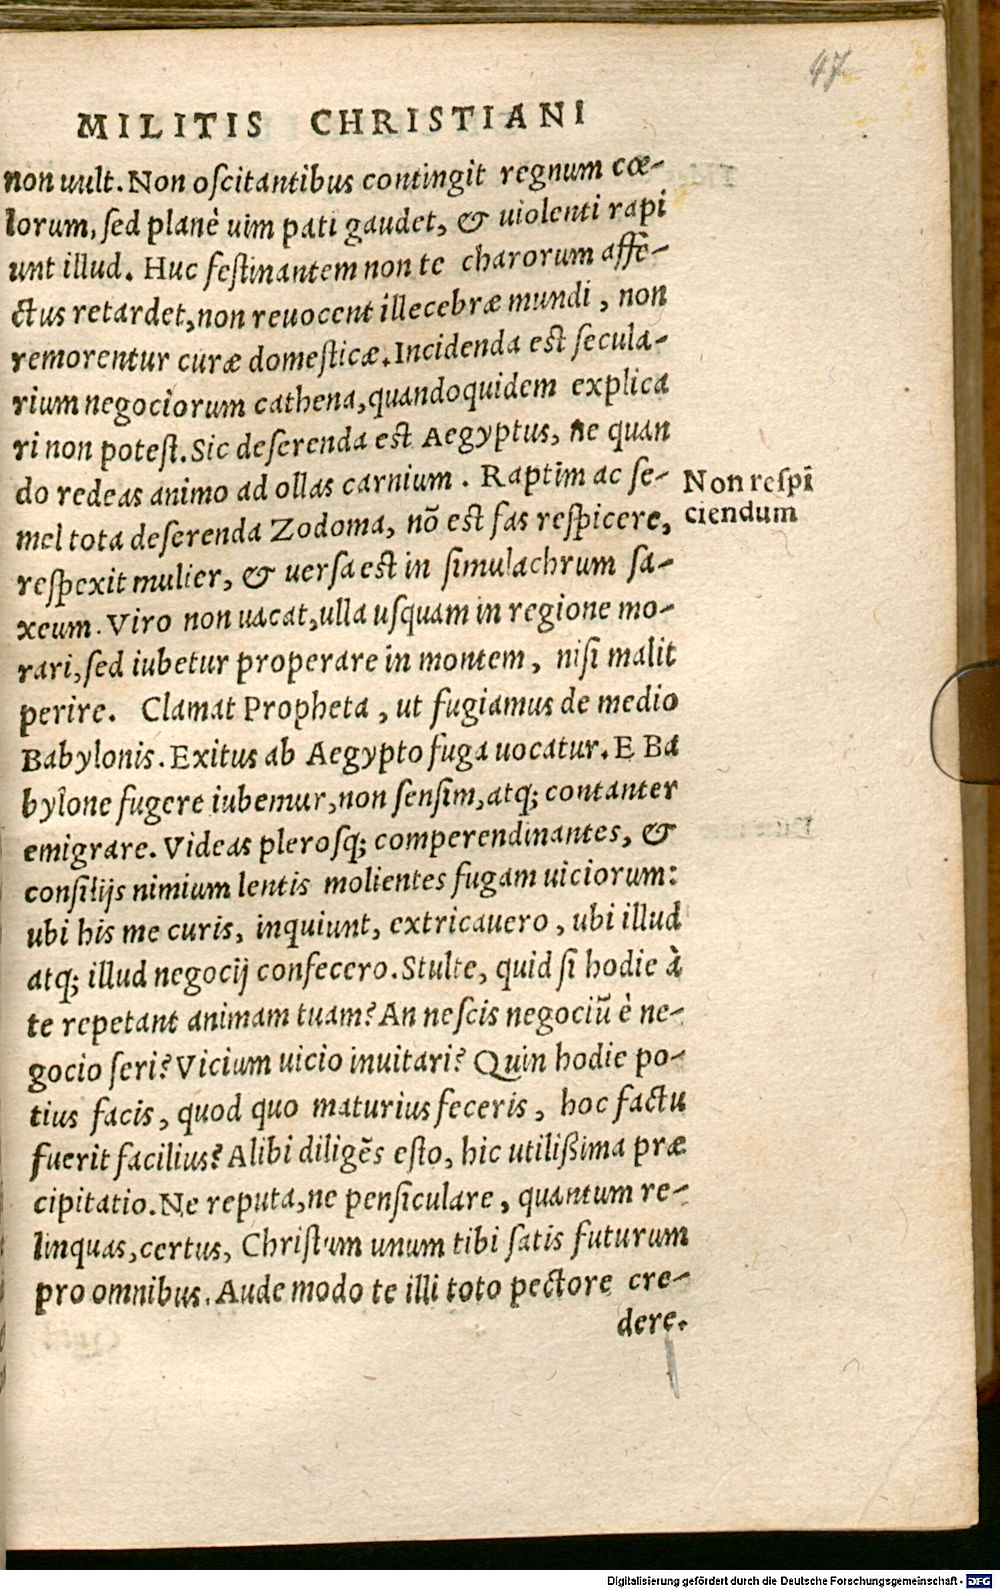 47
MILITIS CHRISTIANI
non uult. Non oſcitantibus contingit regnum cœ-
lorum, ſed planè uim pati gaudet, & uiolenti rapi
unt illud. Huc feſtinantem non te charorum affe-
ctus retardet, non reuocent illecebræ mundi, non
remorentur curæ domeſticæ. Incidenda eſt ſecula-
rium negociorum cathena, quandoquidem explica
ri non poteſt. Sic deſerenda eſt Aegyptus, ne quan
do redeas animo ad ollas carnium. Raptim ac ſe-
mel tota deſerenda Zodoma, nõ eſt fas reſpicere,
Non reſpi
ciendum
reſpexit mulier, & uerſa est in ſimulachrum ſa-
xeum. Viro non uacat, ulla uſquam in regione mo-
rari, ſed iubetur properare in montem, niſi malit
perire. Clamat Propheta, ut fugiamus de medio
Babylonis. Exitus ab Aegypto fuga uocatur. E Ba
bylone fugere iubemur, non ſenſim, atq; contanter
emigrare. Videas pleroſq; comperendinantes, &
conſilijs nimium lentis molientes fugam uiciorum:
ubi his me curis, inquiunt, extricauero, ubi illud
atq; illud negocij confecero. Stulte, quid ſi hodie à
te repetant animam tuam? An neſcis negociũ è ne-
gocio ſeri? Vicium uicio inuitari? Quin hodie po-
tius facis, quod quo maturius feceris, hoc factu
fuerit facilius? Alibi diligẽs eſto, hic utiliſſima præ
cipitatio. Ne reputa, ne penſiculare, quantum re-
linquas, certus, Chriſtum unum tibi ſatis futurum
pro omnibus. Aude modo te illi toto pectore cre-
dere.
Digitalisierung gefördert durch die Deutsche Forschungsgemeinschaft - DFG